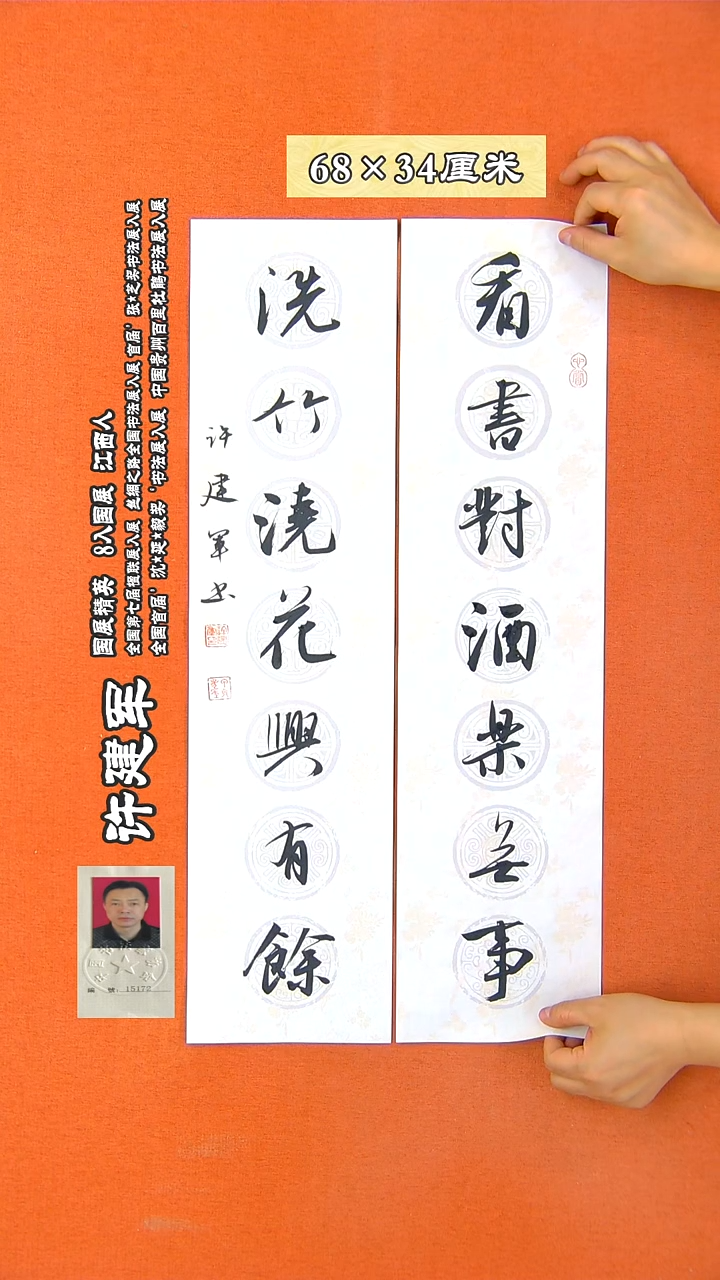 68×34厘米
看書對酒樂無事
洗竹澆花興有餘
许建军书
国展精英 8入国展 江西人
全国第七届楹联展入展 丝绸之路全国书法展入展 首届'张*芝奖书法展入展
全国首届'沈*延*毅奖'书法展入展 中国贵州百里杜鹃书法展入展
许建军
编 號: 15172